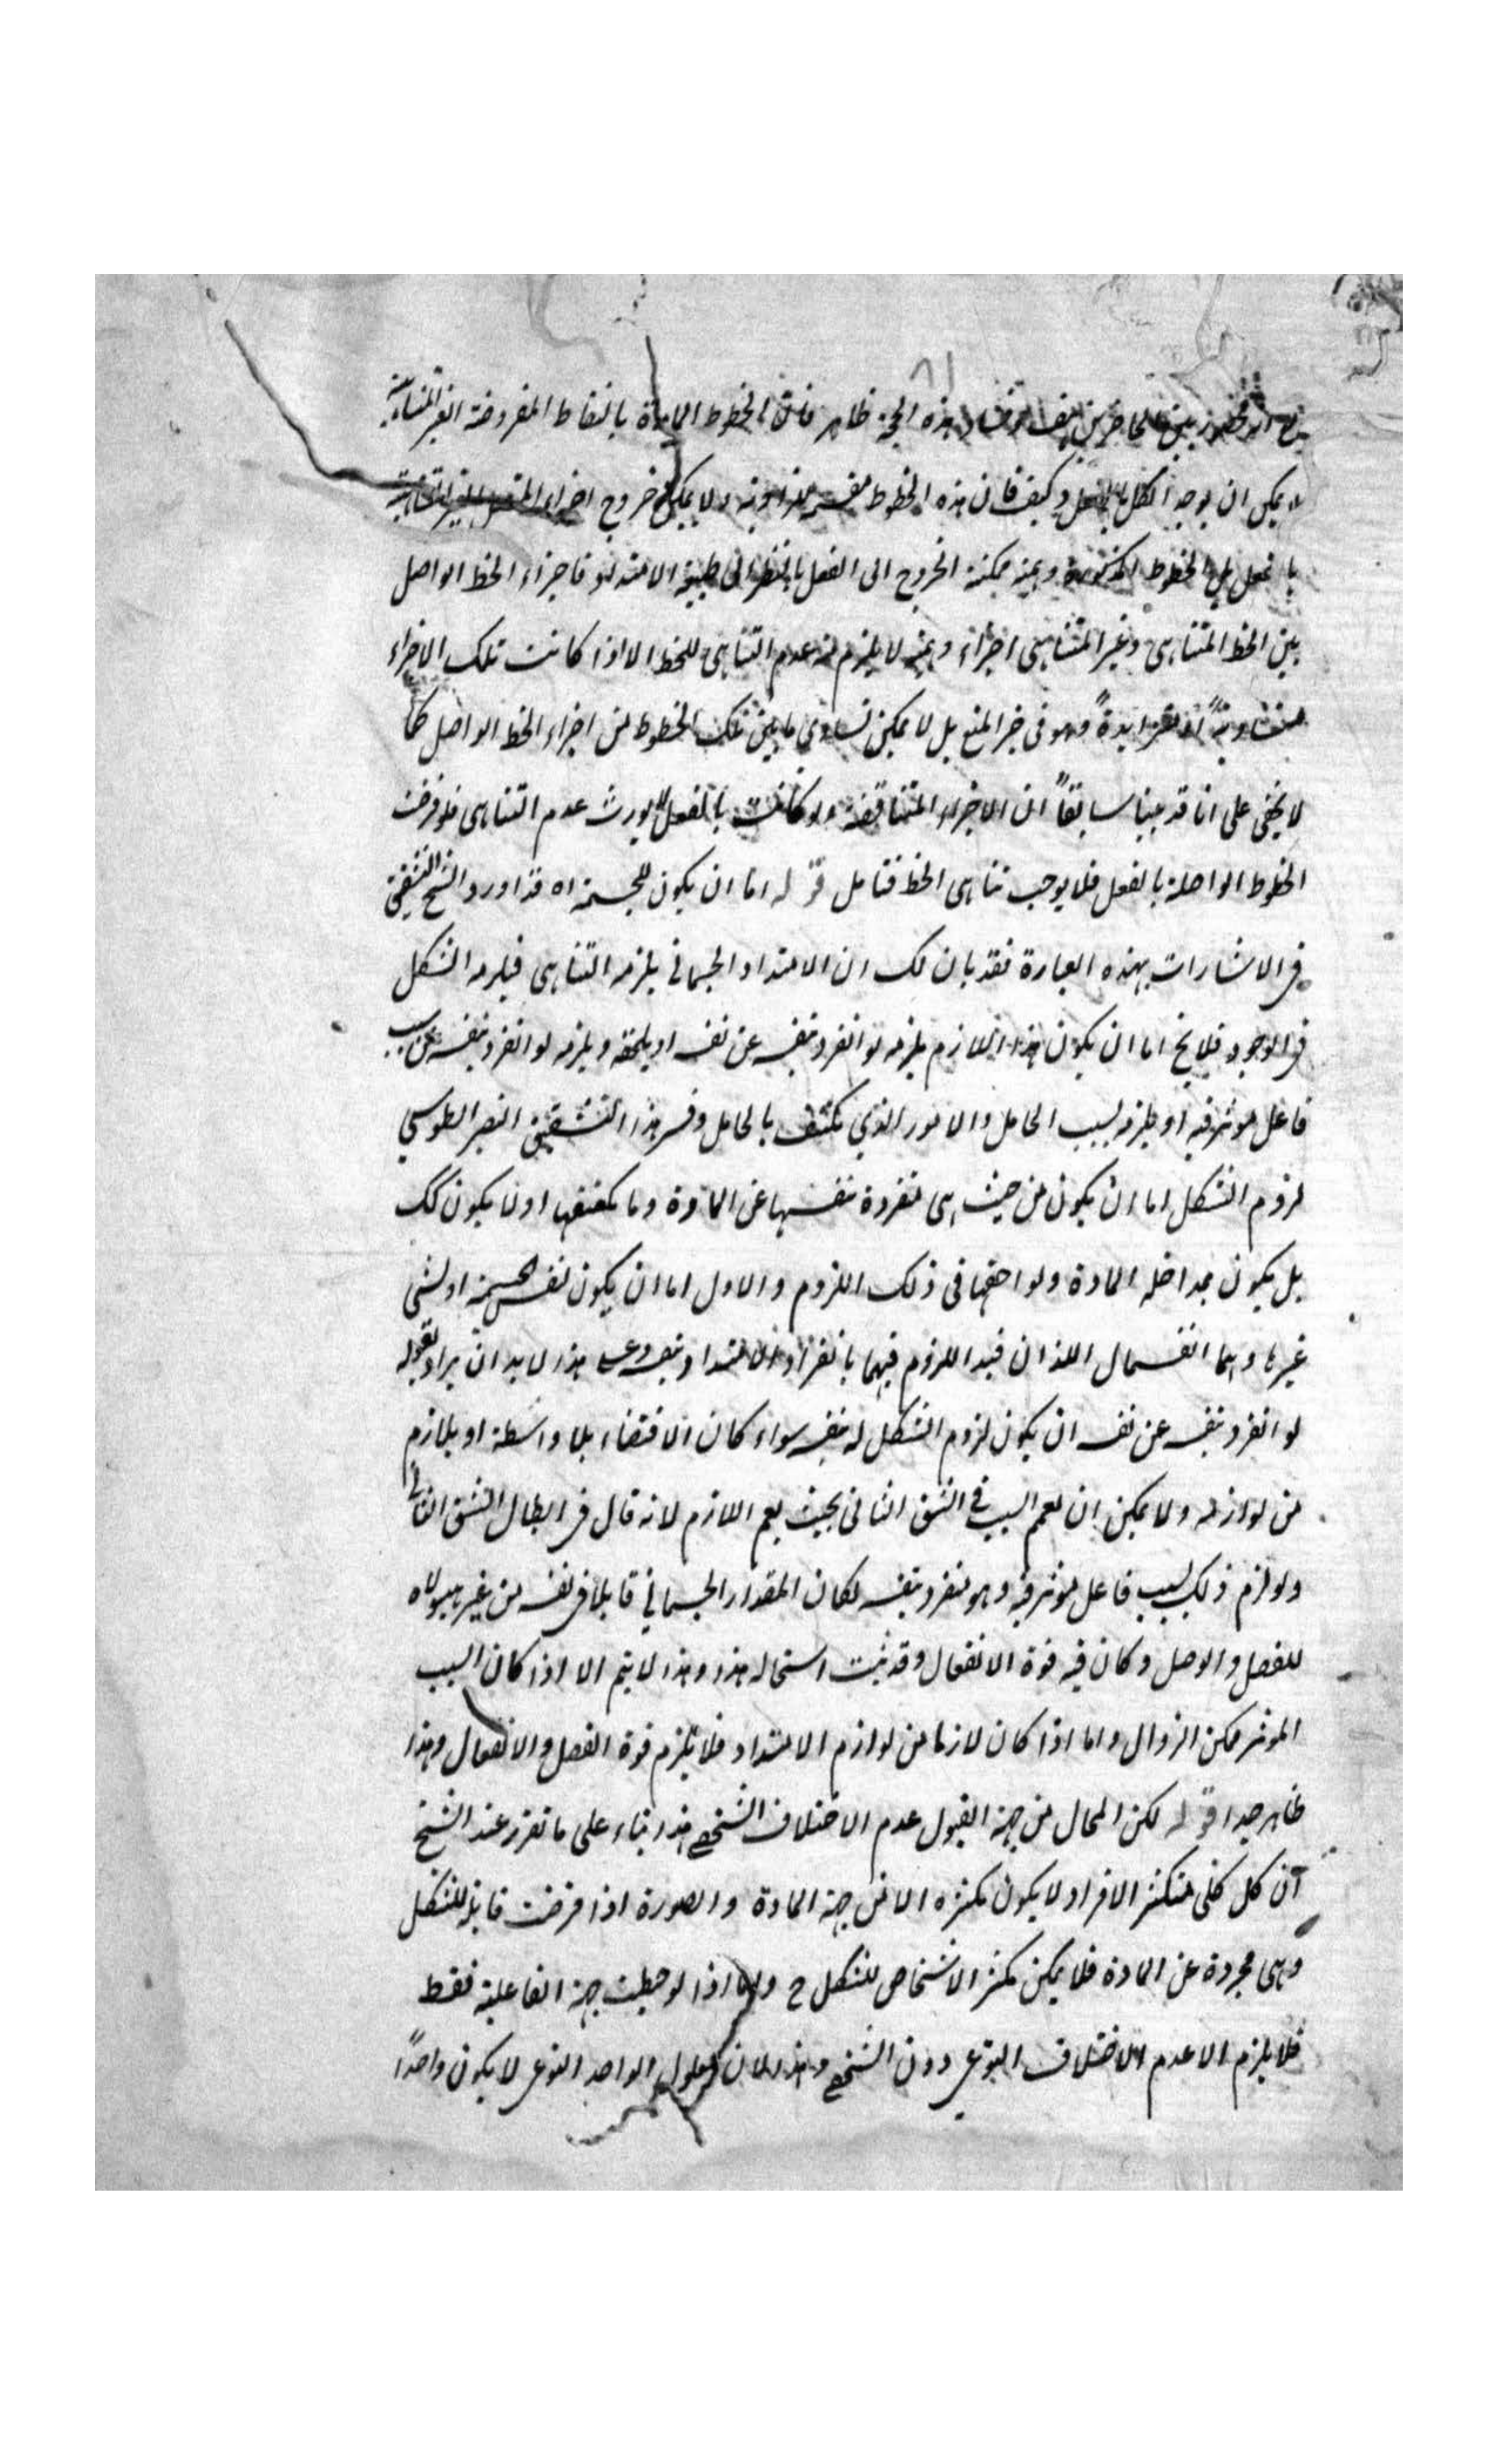 ٨١
بين الحاصرين هف وفساد هذه الحجة ظاهر فان الخطوط المارة بالنقاط المفروضة الغير المتناهية
لا يمكن ان يوجد الكل بالفعل وكيف فان هذه الخطوط ولا يمكن خروج اجزاء المتصل الغير المتناهية
بالفعل بل الخطوط المذكورة ممكنة الخروج الى الفعل بالنظر الى طبيعة الامتداد فاجزاء الخط الواصل
بين الخط المتناهى وغير المتناهى اجزاء لا يلزم منه عدم التناهى للخط الا اذا كانت تلك الاجزاء
متساوية او متزايدة وهو فى حيز المنع بل لا يمكن تساوي ما بين تلك الخطوط من اجزاء الخط الواصل كما
لا يخفى على انا قد بينا سابقاً ان الاجزاء المتناقصة ولو كانت بالفعل لا يورث عدم التناهى فلو فرضت
الخطوط الواصلة بالفعل فلا يوجب تناهى الخط فتامل قوله اما ان يكون للجسمية اه قد اورد الشيخ التشقيق
فى الاشارات بهذه العبارة فقد بان لك ان الامتداد الجسمانى يلزمه التناهى فيلزمه الشكل
فى الوجود فلا يخ اما ان يكون هذا اللازم يلزمه لو انفرد بنفسه عن نفسه او يلحقه ويلزمه لو انفرد بنفسه عن سبب
فاعل موثر فيه او يلزمه بسبب الحامل والامور الذي تكتنف بالحامل وفسر هذا التشقيق النصير الطوسي
لزوم الشكل اما ان يكون من حيث هى منفردة بنفسها عن المادة وما يكتنفها او لا يكون كك
بل يكون بمداخلة المادة ولواحقها فى ذلك اللزوم والاول اما ان يكون لنفس الجسمية او لشى
غيرها وهما القسمان اللذان قيد اللزوم فيهما بانفراد الامتداد بنفسه وعلى هذا لا بد ان يراد بقوله
لو انفرد بنفسه عن نفسه ان يكون لزوم الشكل له بنفسه سواء كان الاقتضاء بلا واسطة او بلازم
من لوازمه ولا يمكن ان يعمم السبب فى الشق الثانى بحيث يعم اللازم لانه قال فى ابطال الشق الثانى
ولو لزم ذلك بسبب فاعل موثر فيه وهو منفرد بنفسه لكان المقدار الجسمانى قابلا فى نفسه من غير هيولاه
للفصل والوصل وكان فيه قوة الانفعال وقد ثبت استحالة هذا وهذا لا يتم الا اذا كان السبب
الموثر ممكن الزوال واما اذا كان لازما من لوازم الامتداد فلا يلزم قوة الفصل والانفعال وهذا
ظاهر جدا قوله لكن المحال من جهة القبول عدم الاختلاف الشخصى هذا بناء على ما تقرر عند الشيخ
ان كل كلى متكثر الافراد لا يكون تكثره الا من جهة المادة والصورة اذا فرضت قابلة للشكل
وهى مجردة عن المادة فلا يمكن تكثر الاشخاص للشكل ح واما اذا لوحظت جهة الفاعلية فقط
فلا يلزم الا عدم الاختلاف النوعى دون الشخصى وهذا لان معلول الواحد النوعى لا يكون واحداً